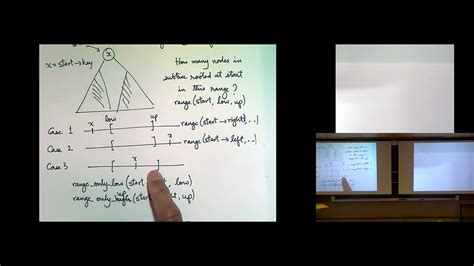 start
x
x = start → key
How many nodes in
subtree rooted at start
in this range?
range (start, low, up)
low
up
Case 1
x
range (start → right, ...)
Case 2
x
range (start → left, ...)
Case 3
x
range_only_low (start low)
range_only_up (start up)